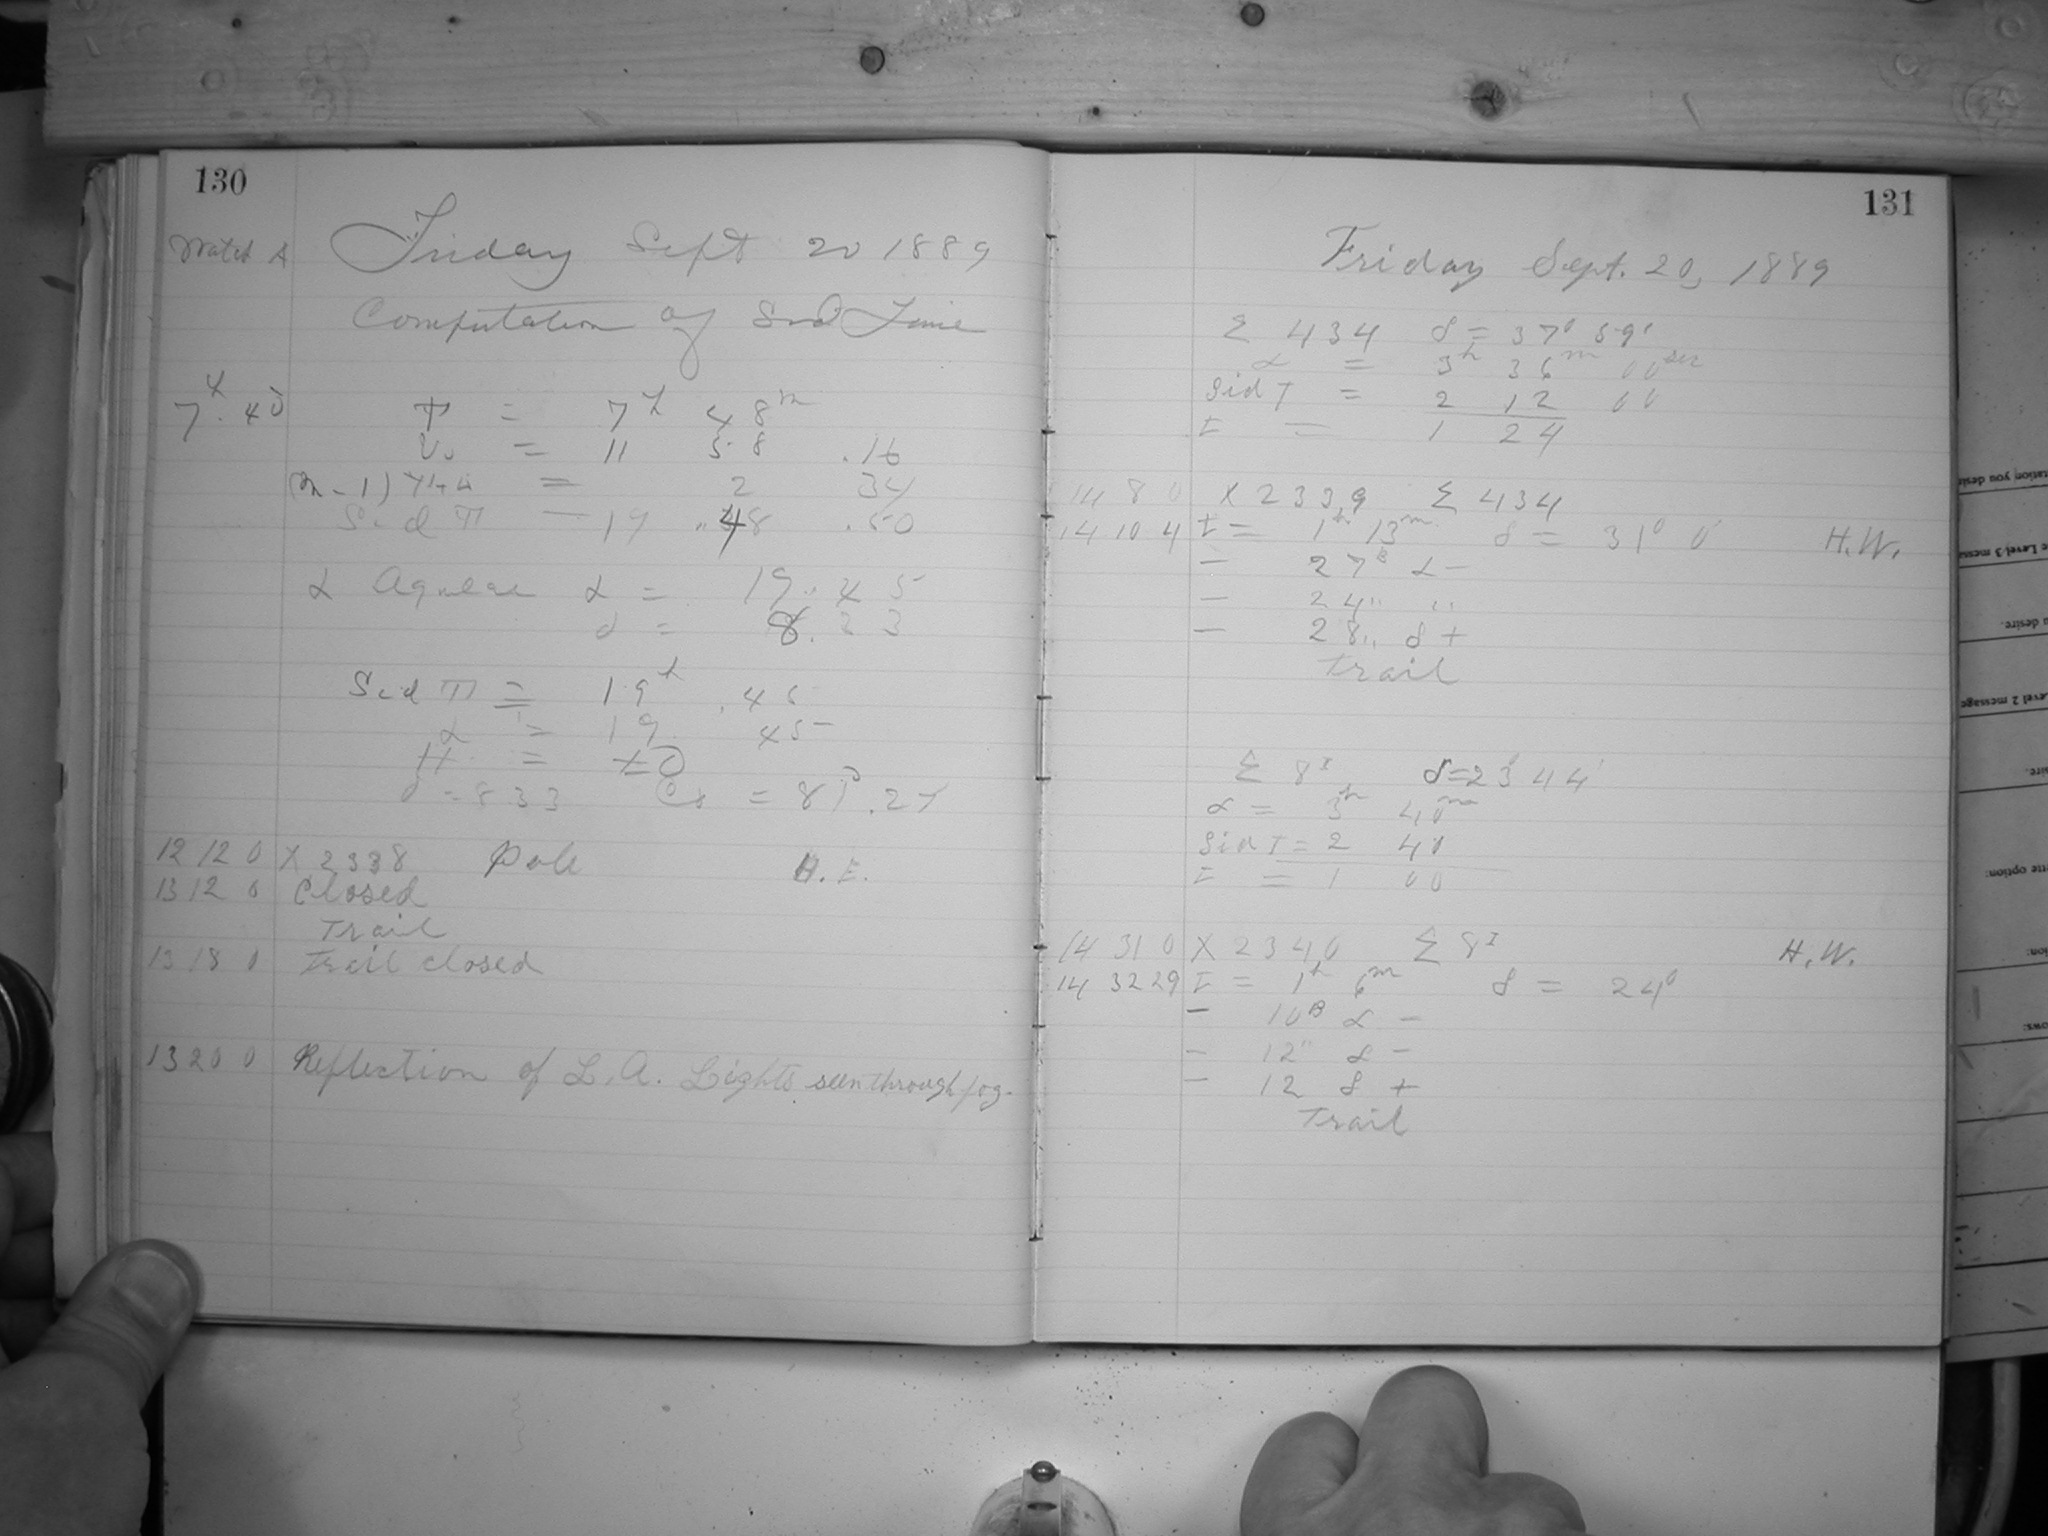 130
Watch A Friday Sept 20 1889
Computation of Sid Time
7h.48 T = 7h 48m
V. = 11 58 .16
(n-1) = 2 34
Sid T = 19 48 .50
α Aquilae α = 19. 45
δ = 8. 33
Sid T = 19h .45
α = 19 45
H = ±0
δ = 8 33 = 81°.27
12 12 0 X 2338 Pole
13 12 0 Closed
Trail
13 18 0 Trail closed
13 20 0 Reflection of L.A. Lights seen through fog.
131
Friday Sept. 20, 1889
Σ 434 δ = 37° 59'
α = 3h 36m 00sec
Sid T = 2 12 00
I = 1 24
14 8 0 X 2339 Σ 434
14 10 4 I = 1h 13m δ = 31° 0 H.W.
— 27B α -
— 24 " "
— 28 " δ +
Trail
Σ 8I δ = 23° 44'
α = 3h 40m
Sid T = 2 40
I = 1 00
14 31 0 X 2340 Σ 8I H.W.
14 32 29 I = 1h 6m δ = 24°
— 10B α -
— 12" α -
— 12 δ +
Trail
tation you desire
e Level 3 message
u desire.
Level 2 message